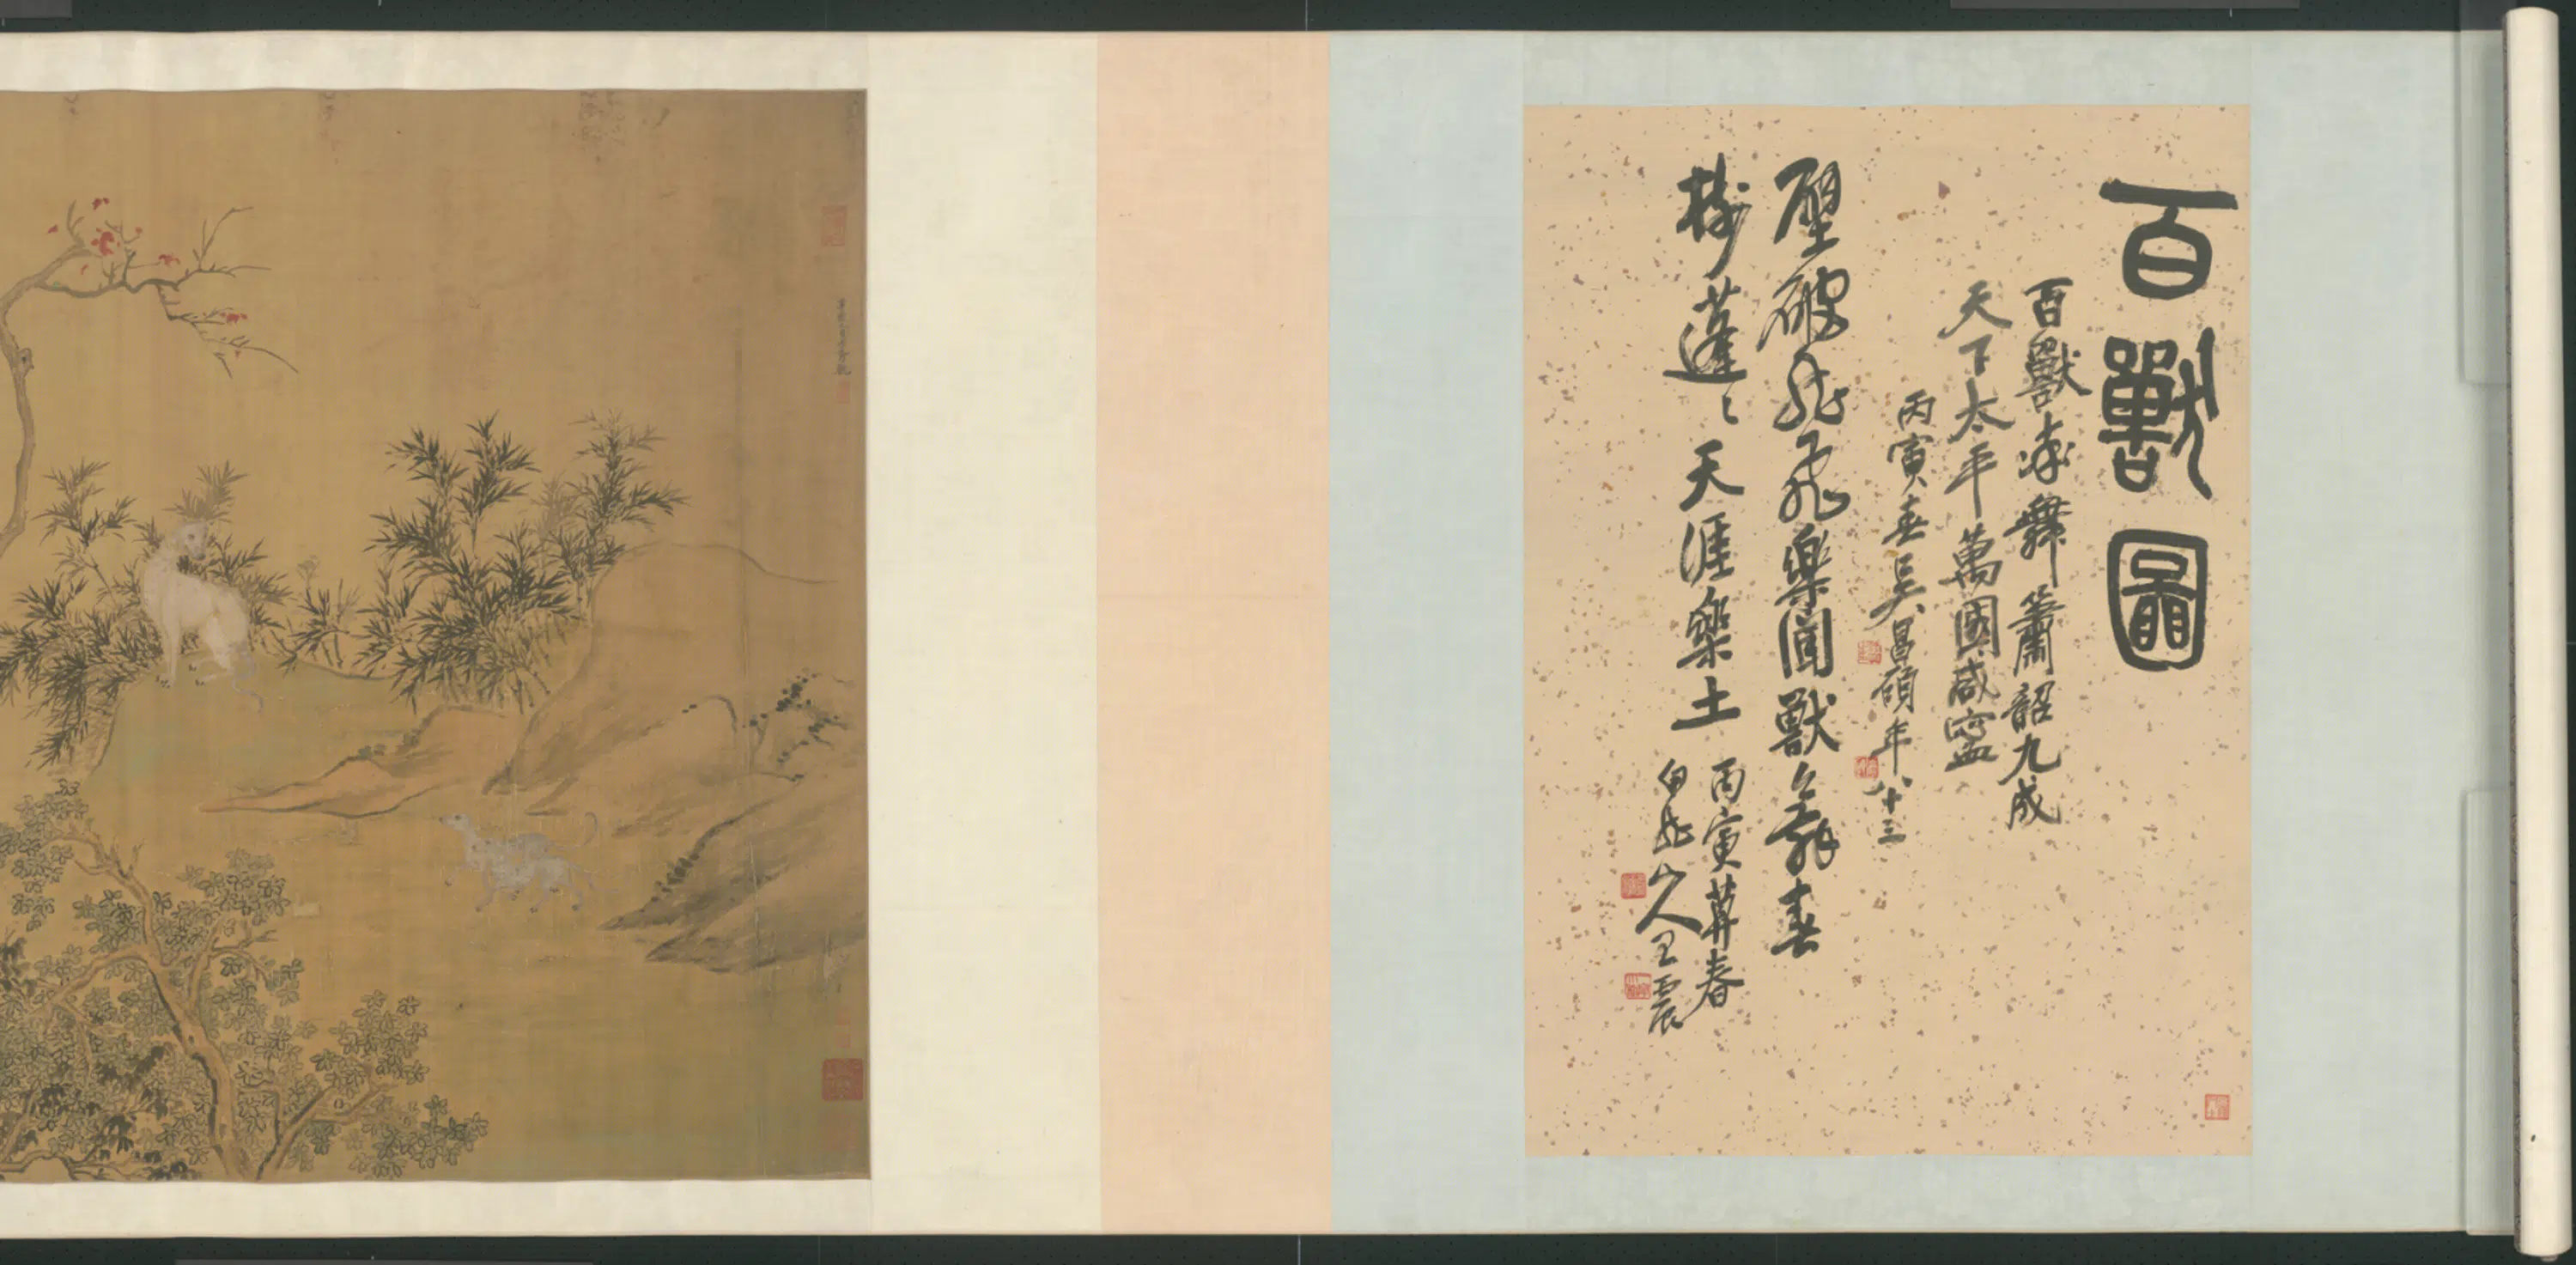 百獸圖
百獸率舞簫韶九成
天下太平萬國咸寧
丙寅春吳昌碩年八十三
壁破龍飛樂園獸舞春
樹蓬〻天涯樂土
丙寅莫春
白龍山人王震